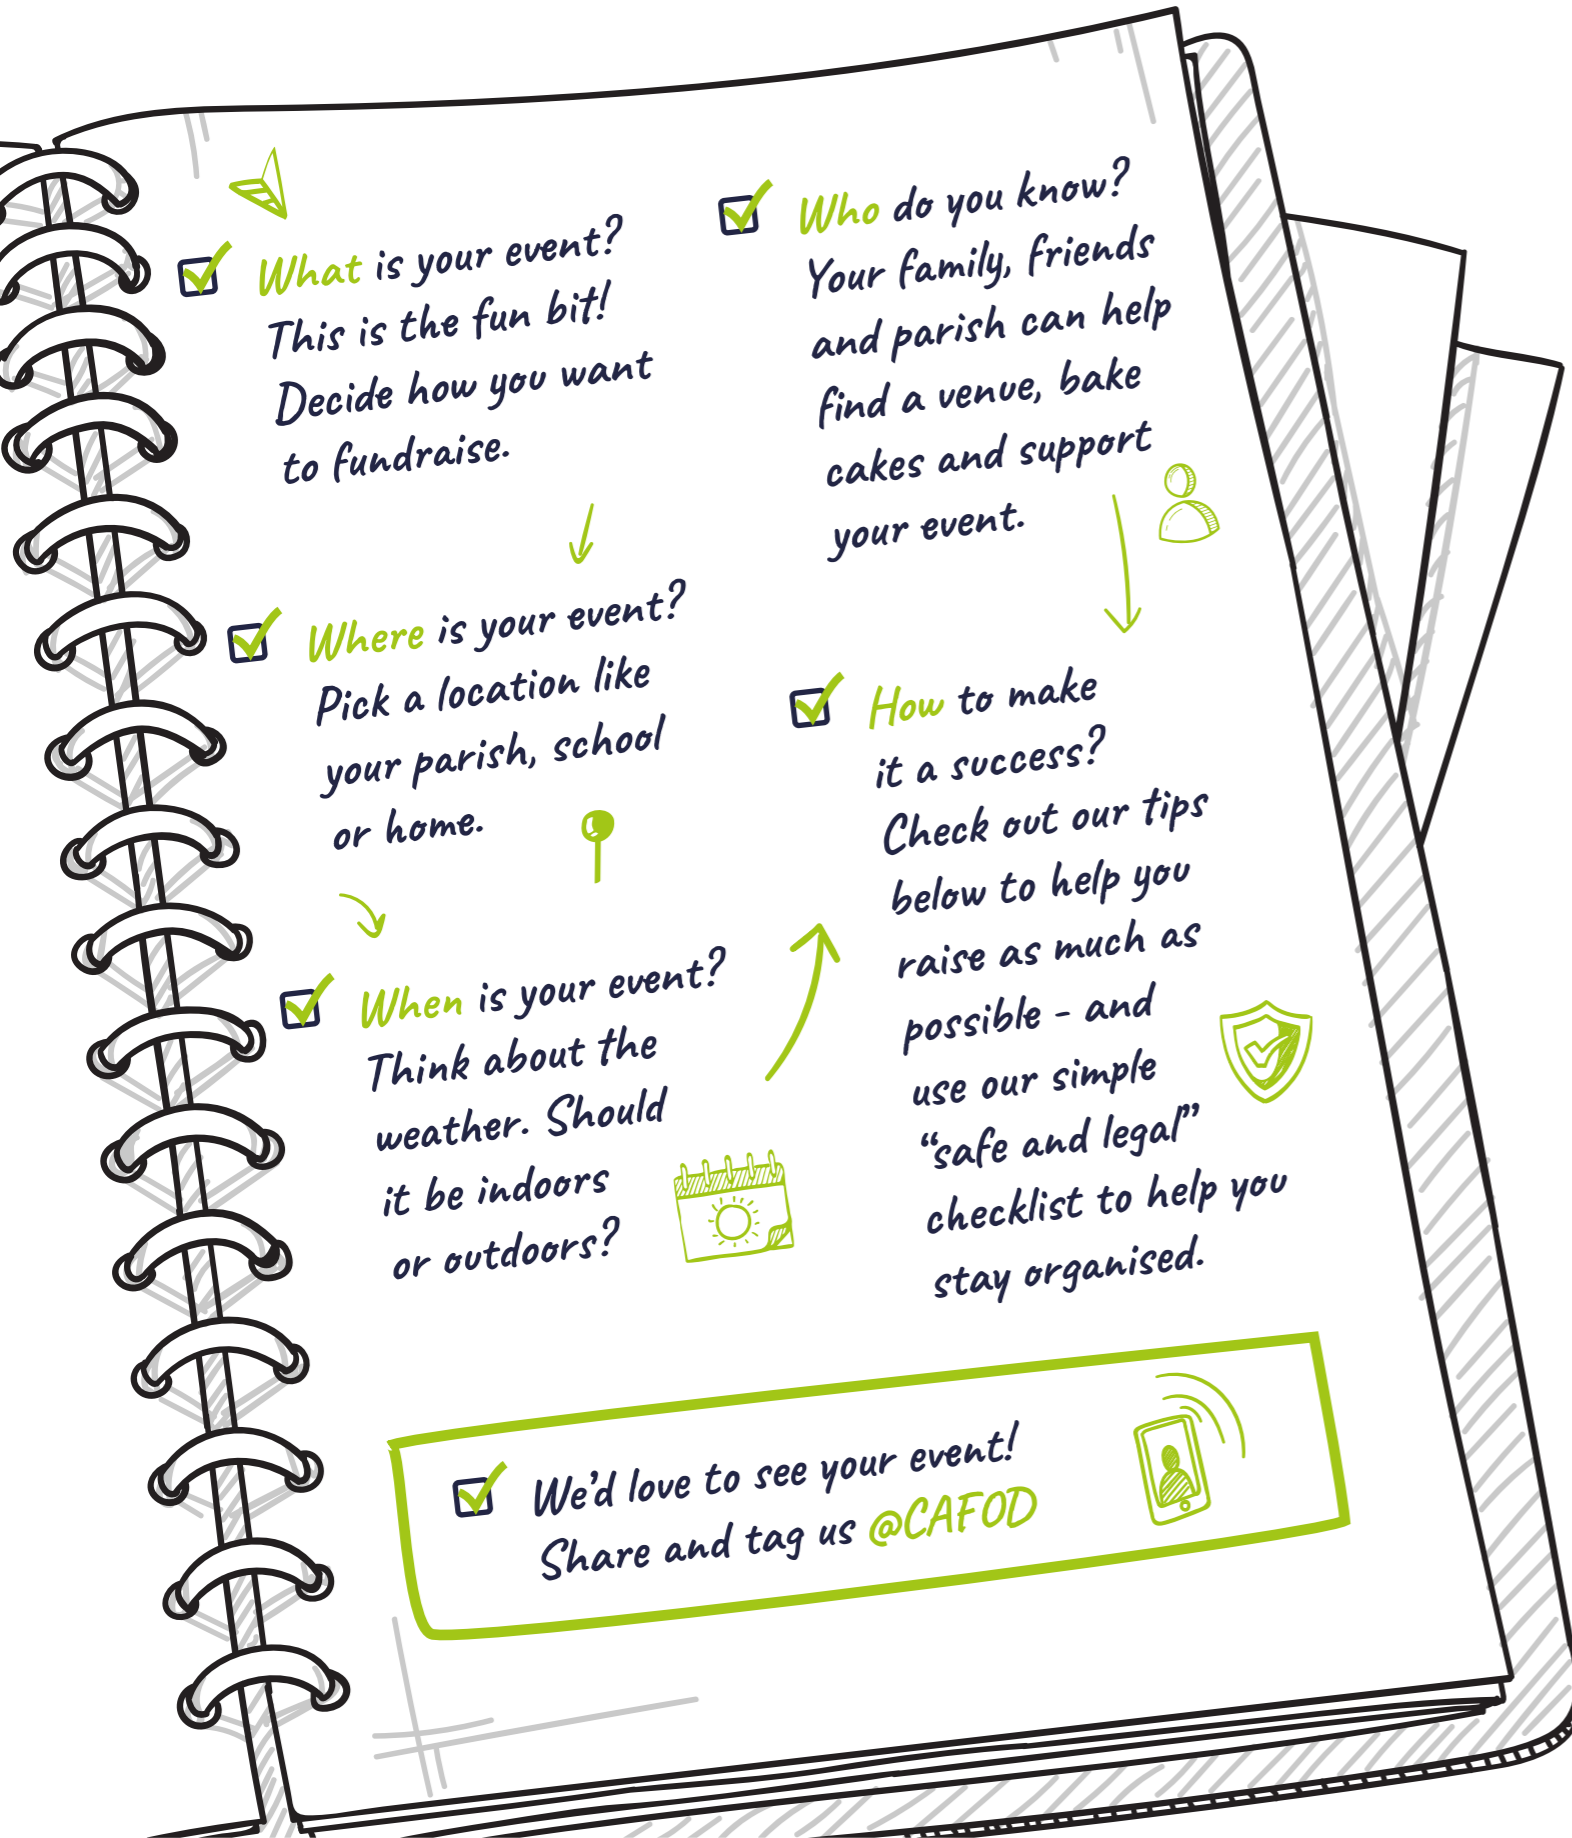 What is your event?
This is the fun bit!
Decide how you want
to fundraise.
Where is your event?
Pick a location like
your parish, school
or home.
When is your event?
Think about the
weather. Should
it be indoors
or outdoors?
Who do you know?
Your family, friends
and parish can help
find a venue, bake
cakes and support
your event.
How to make
it a success?
Check out our tips
below to help you
raise as much as
possible - and
use our simple
“safe and legal”
checklist to help you
stay organised.
We’d love to see your event!
Share and tag us @CAFOD